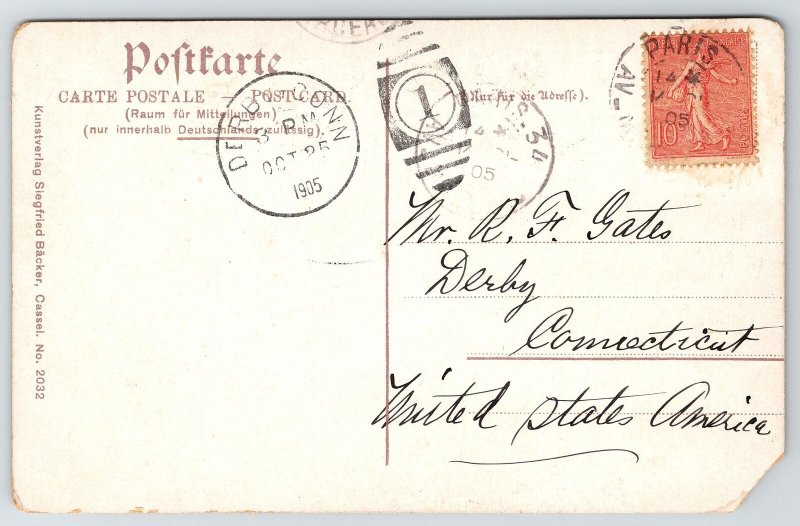 Postkarte
CARTE POSTALE — POST-CARD
(Raum für Mitteilungen)
(nur innerhalb Deutschlands zulässig).
(Nur für die Adresse).
DERBY CONN
3 PM
OCT 25
1905
1
34
05
PARIS
14
AV
05
10
POSTES
Mr. R. F. Gates
Derby
Connecticut
United States America
Kunstverlag Siegfried Bäcker, Cassel. No. 2032